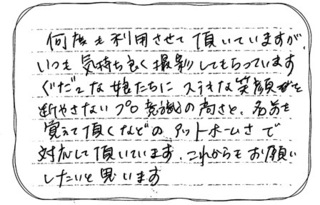 何度も利用させて頂いていますが、
いつも気持ち良く撮影してもらっています
ぐだぐだな娘たちに 笑顔
断やさないプロ意識の高さと、名前を
覚えて頂くなどのアットホームさで
対応して頂いています。これからもお願い
したいと思います